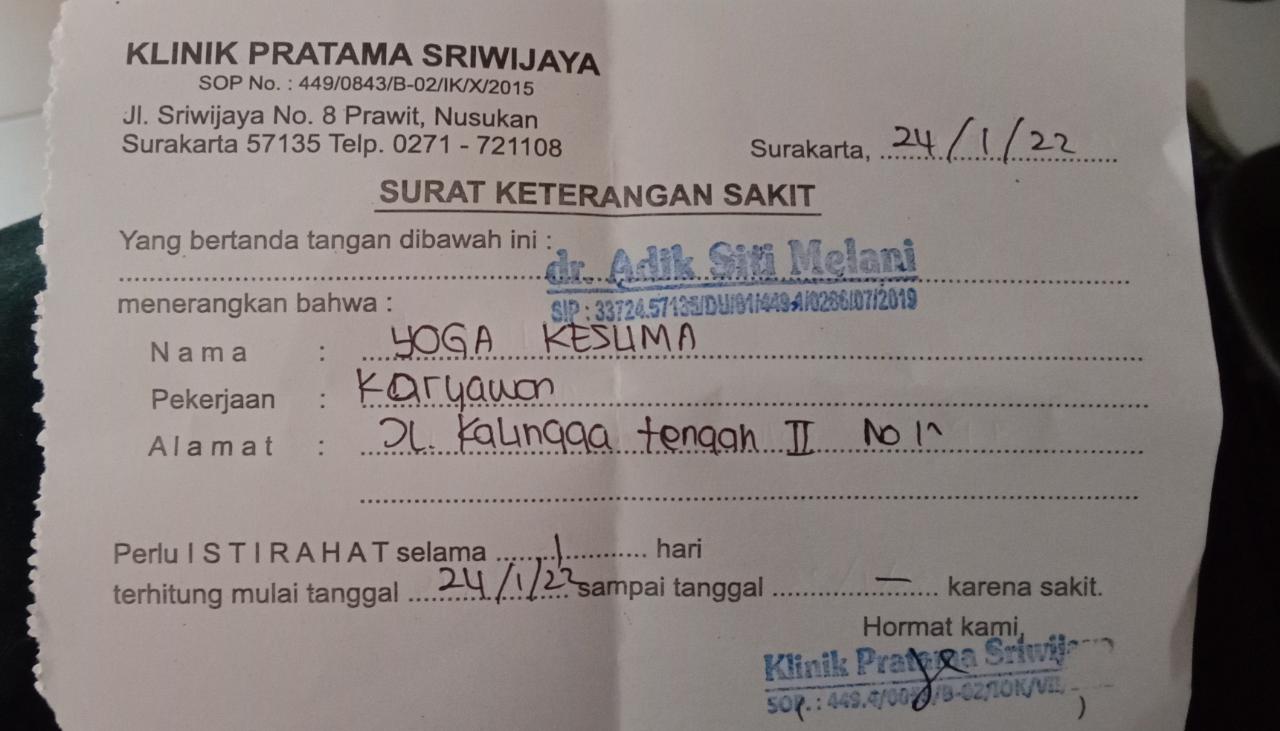 KLINIK PRATAMA SRIWIJAYA
SOP No. : 449/0843/B-02/IK/X/2015
Jl. Sriwijaya No. 8 Prawit, Nusukan
Surakarta 57135 Telp. 0271 - 721108
Surakarta, 24/1/22
SURAT KETERANGAN SAKIT
Yang bertanda tangan dibawah ini :
dr. Adik Siti Melani
menerangkan bahwa :
SIP :
Nama : YOGA KESUMA
Pekerjaan : Karyawan
Alamat : JL. Kalingga tengah II No
Perlu ISTIRAHAT selama 1 hari
terhitung mulai tanggal 24/1/22 sampai tanggal — karena sakit.
Hormat kami,
Klinik Pratama
SOP. :
)